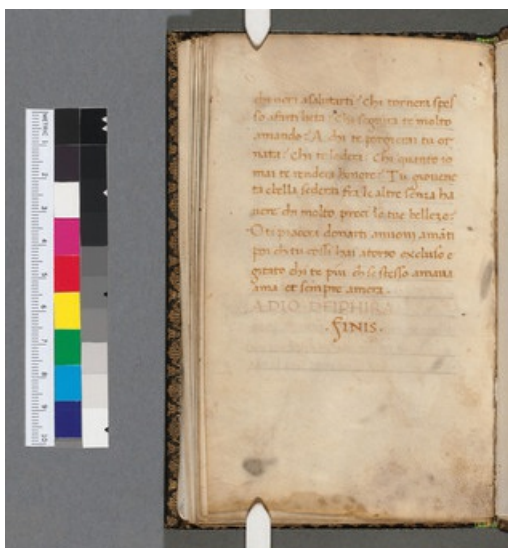 chi verra asalutarti? Chi tornera spes
so afarti lieta? Chi seguira te molto
amando? A chi te porgierai tu or
nata? Chi te lodera? Chi quanto io
mai te rendera honore? Tu giovene
ta e bella sederai fra le altre senza ha
vere chi molto preci le tue belleze?
O ti piacera donarti anuovi amāti
poi ch tu cossi hai atorto excluso e
gitato chi te piu ch se stesso amava
ama et sempre amera.
ADIO DEIPHIRA
.FINIS.